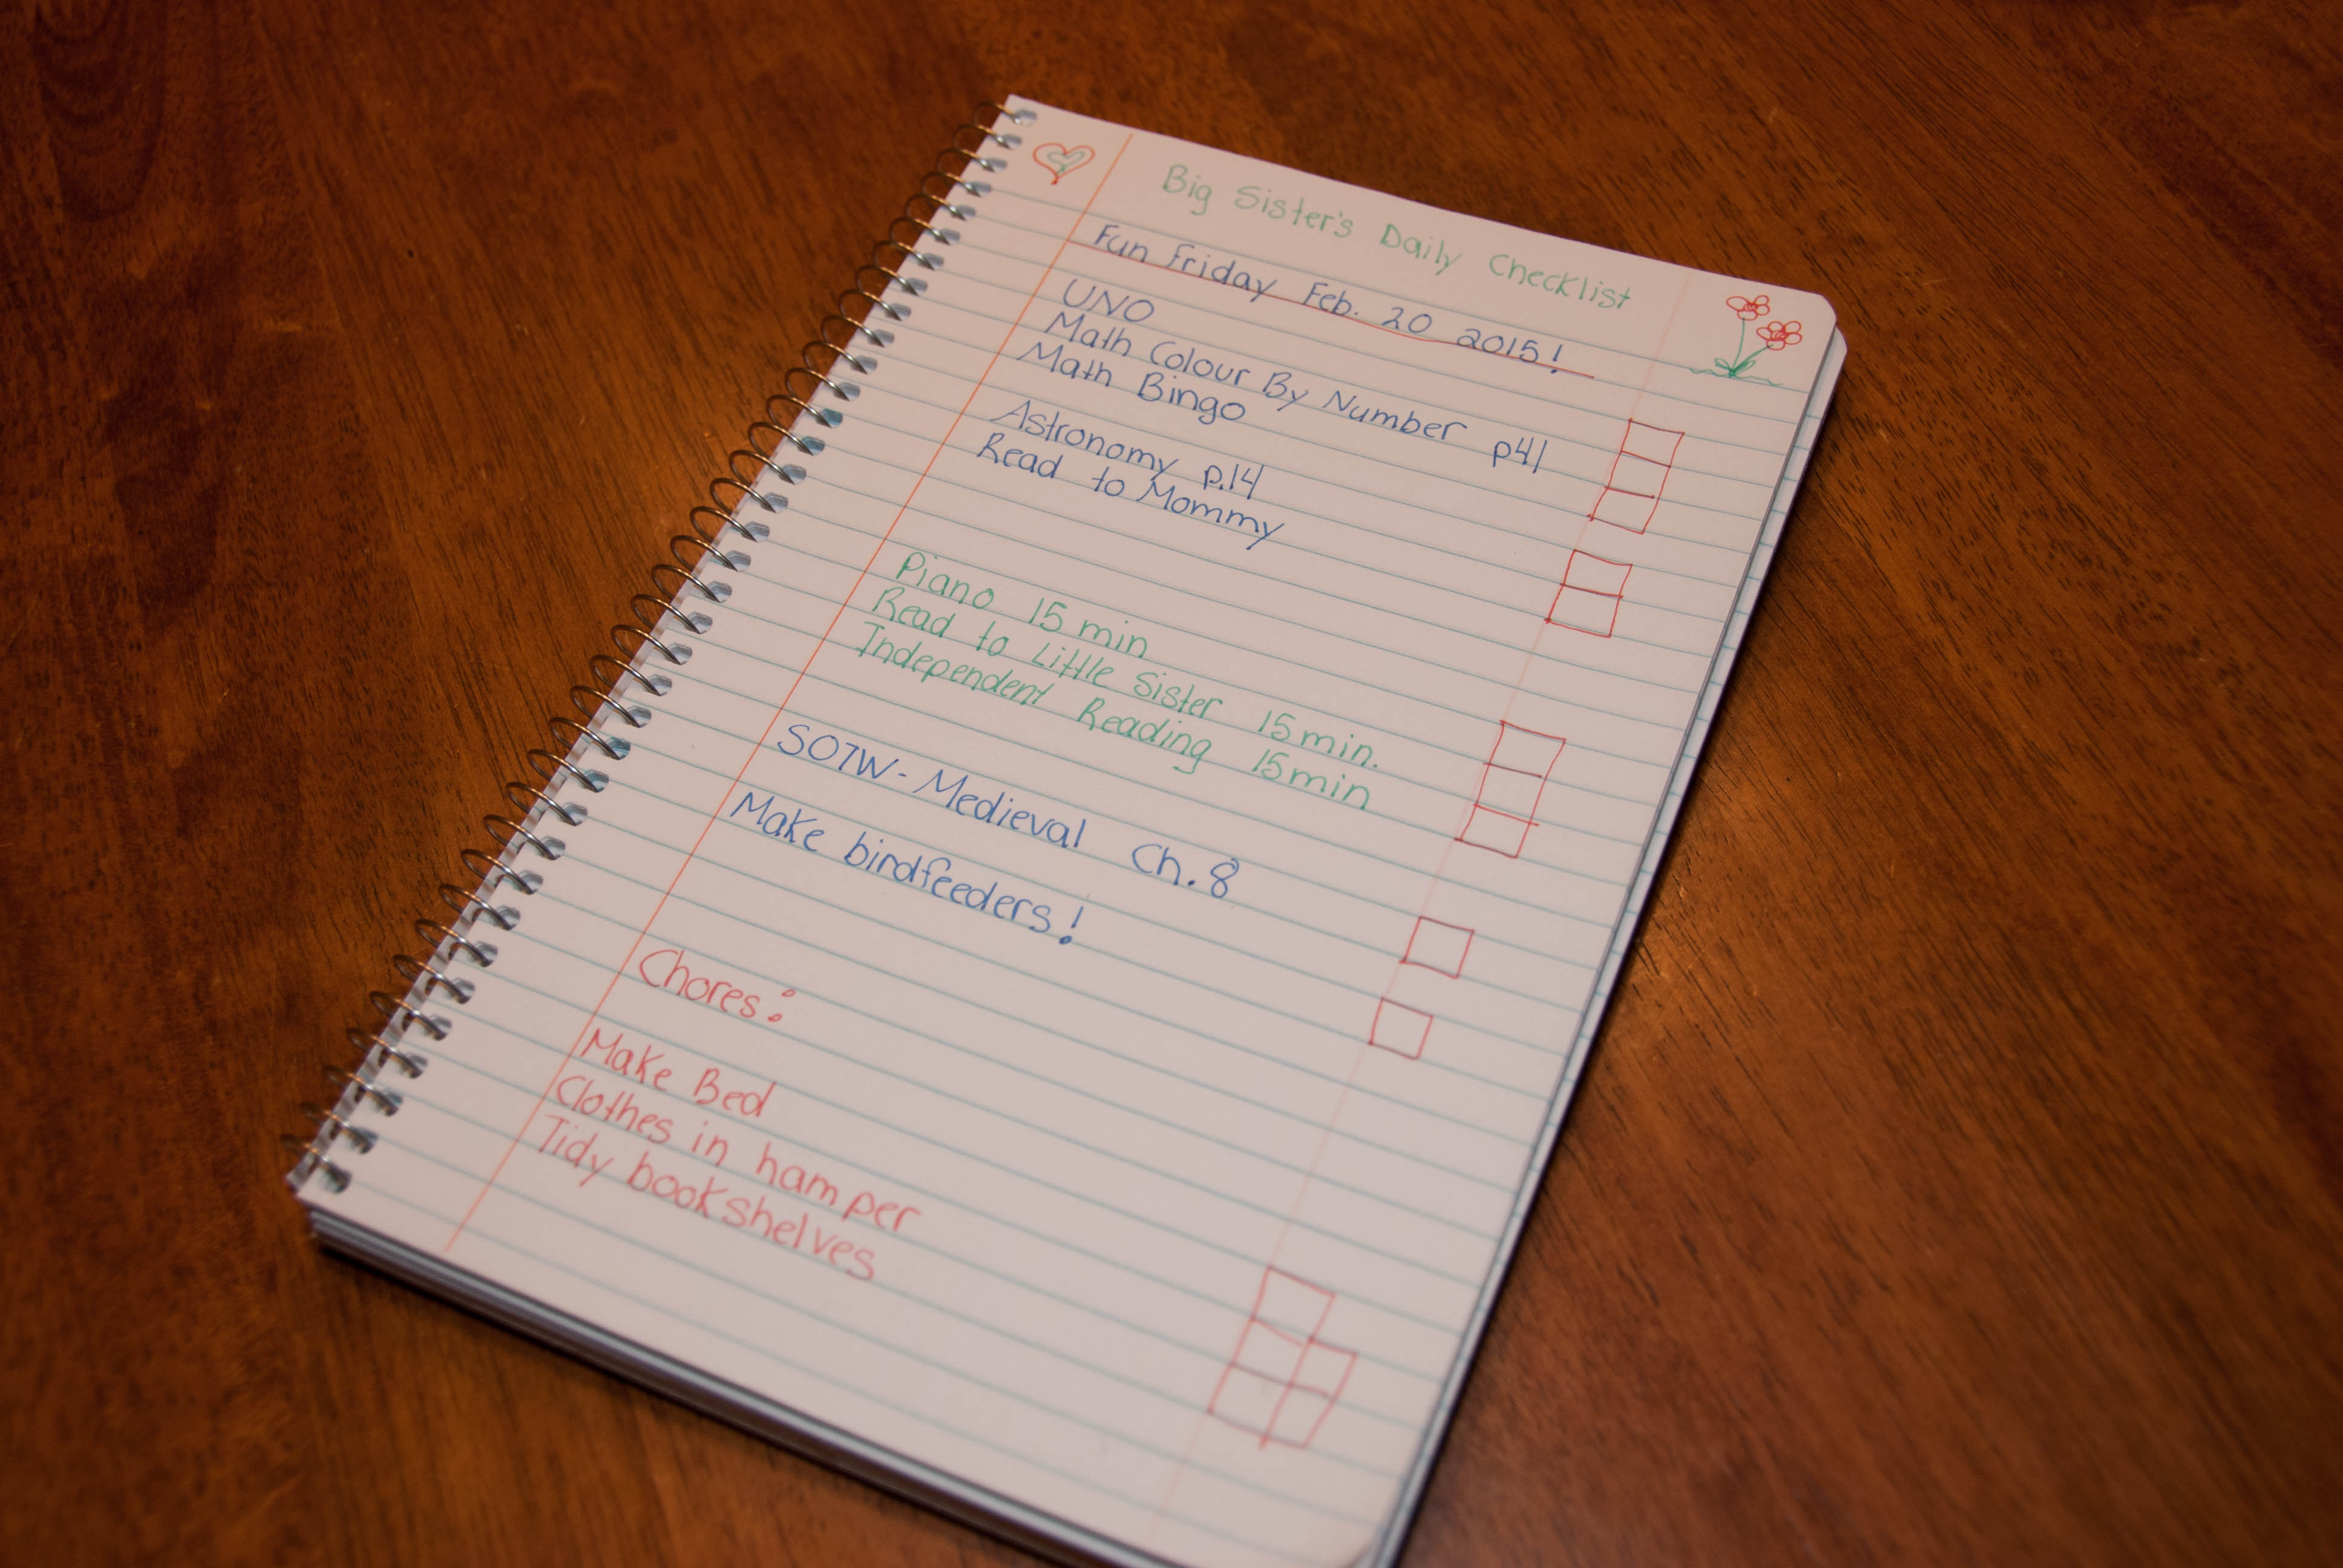 Big Sister's Daily Checklist
Fun Friday Feb. 20 2015!
UNO
Math Colour By Number p41
Math Bingo
Astronomy p.14
Read to Mommy
Piano 15 min
Read to Little Sister 15 min.
Independent Reading 15 min
SOTW - Medieval Ch. 8
Make birdfeeders!
Chores:
Make Bed
Clothes in hamper
Tidy bookshelves